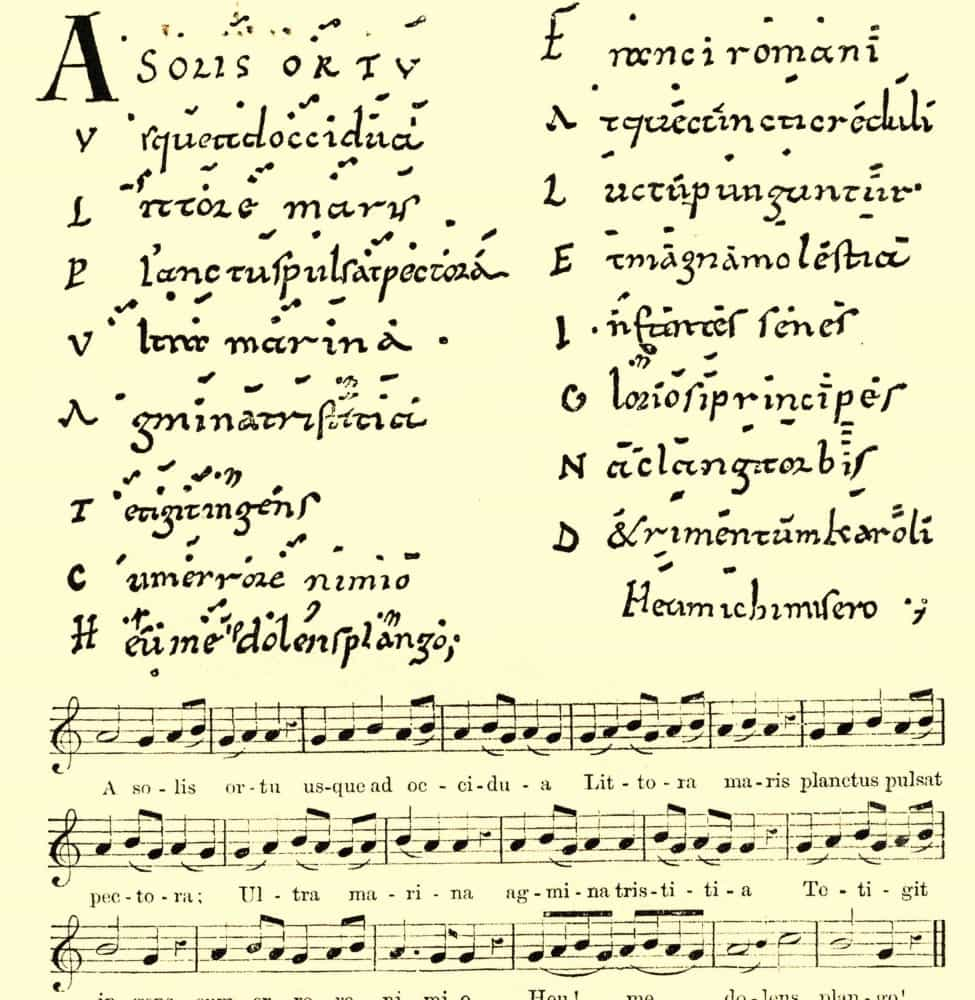 A SOLIS ORTV
V squead occidua
L ittora maris
P lanctus pulsat pectora
V ltra marina
A gmina tristitia
T etigit ingens
C um errore nimio
H eu me dolens plango;
F ranci romani
A tque cuncti creduli
L uctu punguntur
E t magna molestia
I nfantes senes
G loriosi principes
N ā clangit orbis
D &rimentum karoli
Heu michi misero
A so - lis or - tu us-que ad oc - ci - du - a Lit - to - ra ma - ris planctus pulsat
pec - to - ra; Ul - tra ma - ri - na ag - mi - na tris - ti - ti - a Te - ti - git
in - gens cum er - ro - re ni - mi - o Heu! me do - lens plan - go!